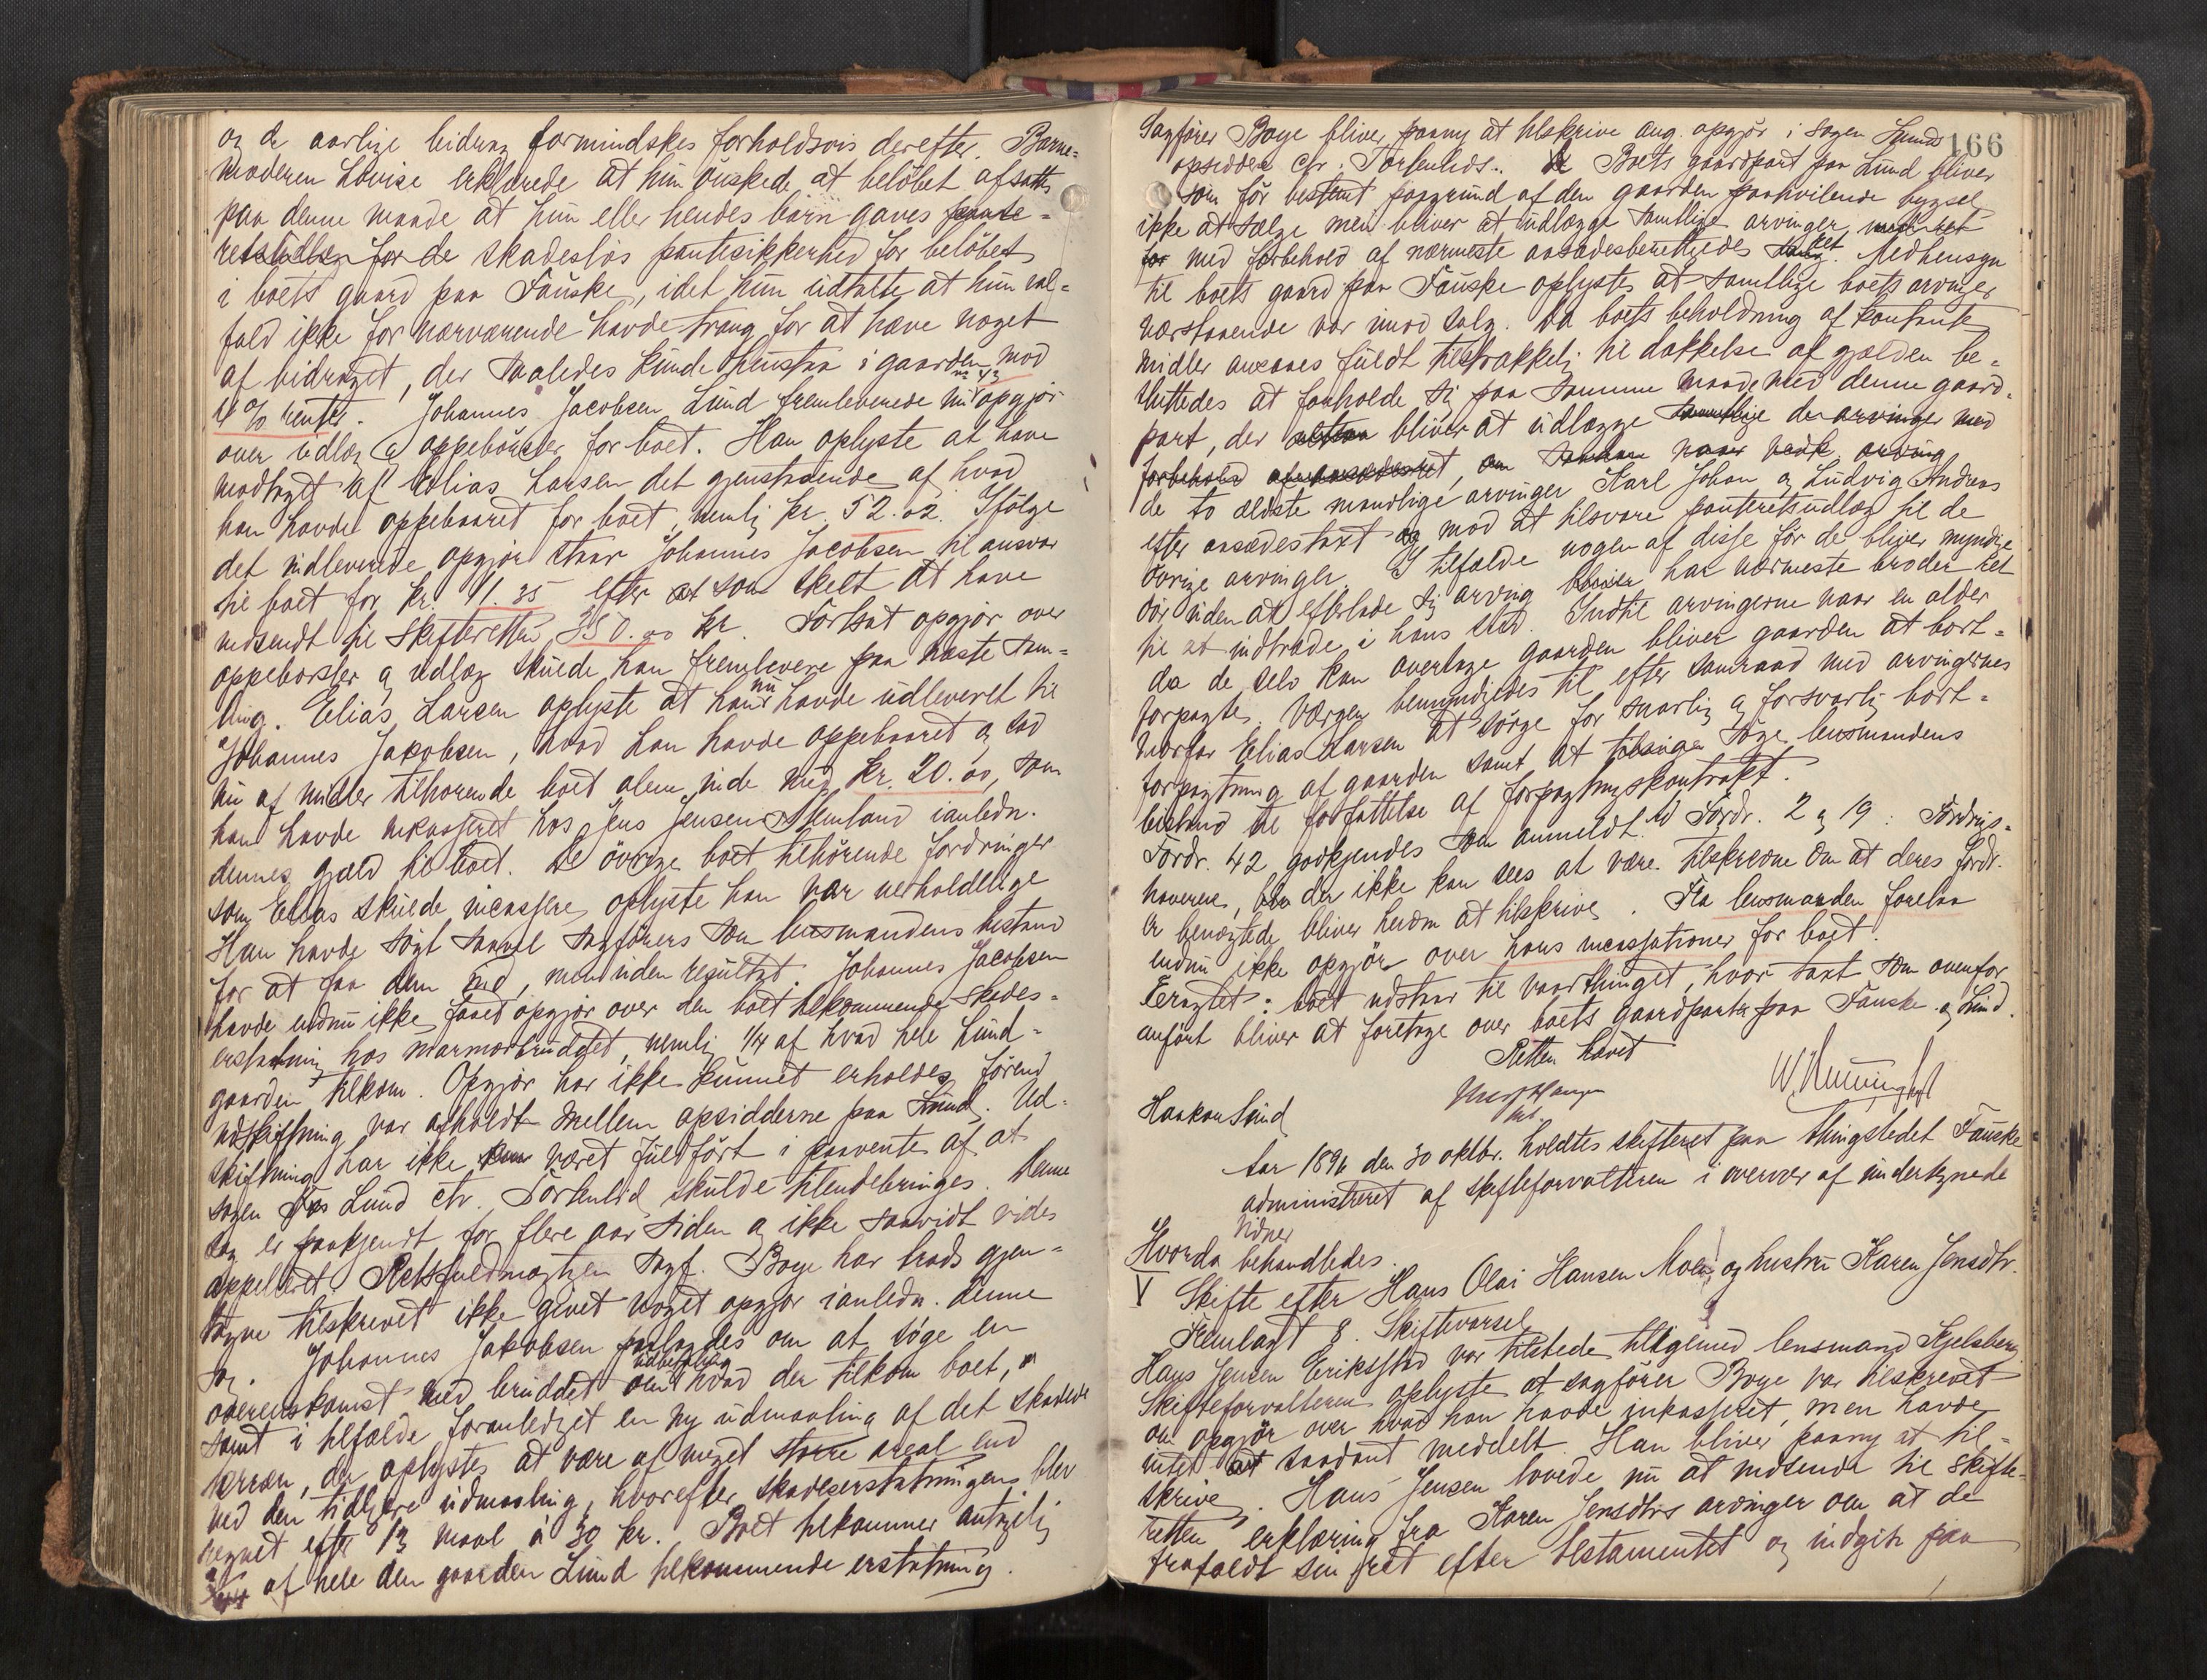 og de aarlige bidrag formindskes forholdsvis derefter. Barne-
moderen Lovise erklærede at hun ønskede at beløbet afsattes
paa denne maade at hun eller hendes børn gaves pante-
retsudlæg for de skadesløs pantesikkerhed for beløbet
i boets gaard paa Fauske, idet hun udtalte at hun ial-
fald ikke for nærværende havde trang for at hæve noget
af bidraget, der saaledes kunde henstaa i gaarden mod
4 % renter. Johannes Jacobsen Lund fremleverede nu opgjør
over udlæg og oppebørsler for boet. Han oplyste at have
modtaget af Elias Larsen det gjenstaaende af hvad
han havde oppebaaret for boet, nemlig kr. 52.02. Ifølge
det indleverede opgjør staar Johannes Jacobsen til ansvar
til boet for kr. 11.35 efter at som skelt at have
indsendt til skifteretten 350.00 kr. Fortsat opgjør over
oppebørsler og udlæg skulde han fremlevere paa næste sam-
ling. Elias Larsen oplyste at han nu havde udleveret til
Johannes Jakobsen, hvad han havde oppebaaret og sad
nu af midler tilhørende boet alene inde med kr. 20.00, som
han havde inkasseret hos Jens Jensen Stemland ianledn.
dennes gjæld til boet. De øvrige boet tilhørende fordringer
som Elias skulde incassere, oplyste han var uerholdelige
Han havde søgt saavel sagførers som lensmandens bistand
for at faa dem ind, men uden resultat. Johannes Jacobsen
havde endnu ikke faaet opgjør over den boet tilkommende skades-
erstatning hos marmorbruddet, nemlig 1/4 af hvad hele Lund-
gaarden tilkom. Opgjør har ikke kunnet erholdes førend
udskiftning var afholdt mellem opsidderne paa Lund. Ud-
skiftning har ikke kun været fuldført i paavente af at
sagen Lund ctr. Torkenlid skulde tilendebringes. Denne
sag er paakjendt for flere aar siden og ikke saavidt vides
appelleret. Retsfuldmægtigen sagf. Boye har trods gjen-
tagne tilskrevet ikke givet noget opgjør ianledn. denne
sag. Johannes Jakobsen paalagdes om at søge en
overenskomst med bruddet om udbetaling hvad der tilkom boet,
samt i tilfælde foranlediget en ny udmaaling af det skadede
terræn, der oplystes at være af meget større areal end
ved den tidligere udmaaling, hvorefter skadeserstatningen blev
regnet efter 13 maal à 30 kr. Boet tilkommer antagelig
1/4 af hele den gaarden Lund tilkommende erstatning.
166
Sagfører Boye bliver paany at tilskrive ang. opgjør i sagen Lund
opsiddere ctr. Torkenlids. Boets gaardpart paa Lund bliver
som før bestemt paagrund af den gaarden paahvilende bygsel
ikke at sælge men bliver at udlægge samtlige arvinger med ret
for med forbehold af nærmeste aasædesberettigedes ret. Medhensyn
til boets gaard paa Fauske oplystes at samtlige boets arvinger
nærstaaende var imod salg. Da boets beholdning af kontante
midler ansaaes fuldt tilstrækkelig til dækkelse af gjælden be-
sluttedes at forholde sig paa samme maade med denne gaard-
part, der bliver at udlægge samtlige de arvinger med
forbehold af aasædesret, om
de to ældste mandlige arvinger Karl Johan og Ludvig Andreas
efter aasædestaxt og mod at tilsvare panteretsudlæg til de
øvrige arvinger. I tilfælde nogen af disse før de bliver myndige
dør uden at efterlade sig arving har nærmeste broder ret
til at indtræde i hans sted. Indtil arvingerne naar en alder
da de selv kan overtage gaarden bliver gaarden at bort-
forpagte. Værgen bemyndigedes til efter samraad med arvingernes
morfar Elias Larsen at sørge for snarlig og forsvarlig bort-
forpagtning af gaarden samt at tilsige søge lensmandens
bistand til forfattelse af forpagtningskontrakt.
Fordr. 42 godkjendes som anmeldt. Ad Fordr. 2 og 19: Fordrings-
haverne, der ikke kan sees at være tilskrevne om at deres fordr.
er benægtede bliver herom at tilskrive. Fra lensmanden forelaa
endnu ikke opgjør over hans incassationer for boet.
Eragtet: boet udstaar til vaarthinget, hvor taxt som ovenfor
anført bliver at foretage over boets gaardparter paa Fauske og Lund.
Retten hævet
Haakon Lund
Aar 1896 den 30 oktbr. holdtes skifteret paa thingstedet Fauske
administreret af skifteforvalteren i overvær af undertegnede
vidner
Hvorda behandledes.
V Skifte efter Hans Olai Hansen Moen og hustru Karen Jensdtr.
Fremlagt 8. Skiftevarsel
Hans Jensen Erikstad var tilstede tilligemed lensmand Kjelsberg
Skifteforvalteren oplyste at sagfører Boye var tilskrevet
om opgjør over hvad han havde inkasseret, men havde
intet saadant meddelt. Han bliver paany at til-
skrive. Hans Jensen lovede nu at indsende til skifte-
retten erklæring fra Karen Jensdtrs arvinger om at de
frafaldt sin ret efter testamentet og indgik paa